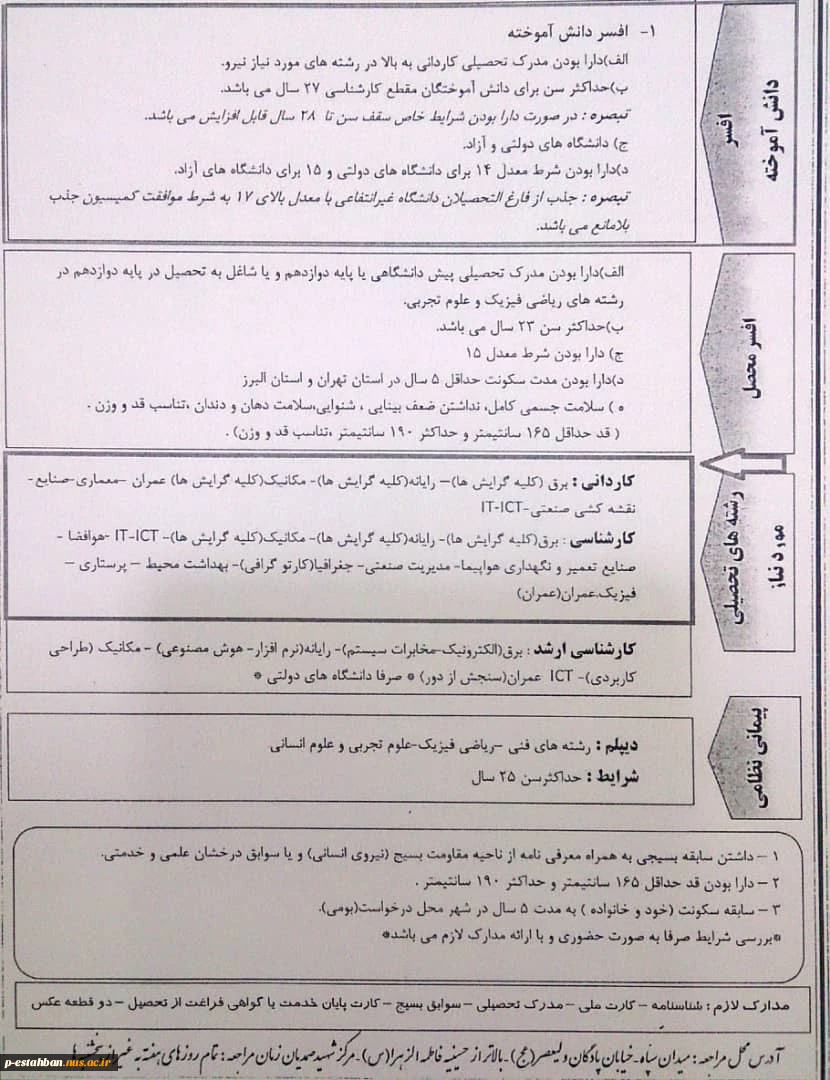 دانش آموخته
افسر
۱- افسر دانش آموخته
الف)دارا بودن مدرک تحصیلی کاردانی به بالا در رشته های مورد نیاز نیرو.
ب)حداکثر سن برای دانش آموختگان مقطع کارشناسی ۲۷ سال می باشد.
تبصره : در صورت دارا بودن شرایط خاص سقف سن تا ۲۸ سال قابل افزایش می باشد.
ج) دانشگاه های دولتی و آزاد.
د)دارا بودن شرط معدل ۱۴ برای دانشگاه های دولتی و ۱۵ برای دانشگاه های آزاد.
تبصره : جذب از فارغ التحصیلان دانشگاه غیرانتفاعی با معدل بالای ۱۷ به شرط موافقت کمیسیون جذب
بلامانع می باشد.
افسر محصل
الف)دارا بودن مدرک تحصیلی پیش دانشگاهی یا پایه دوازدهم و یا شاغل به تحصیل در پایه دوازدهم در
رشته های ریاضی فیزیک و علوم تجربی.
ب)حداکثر سن ۲۳ سال می باشد.
ج) دارا بودن شرط معدل ۱۵
د)دارا بودن مدت سکونت حداقل ۵ سال در استان تهران و استان البرز
ه ) سلامت جسمی کامل، نداشتن ضعف بینایی ، شنوایی،سلامت دهان و دندان ،تناسب قد و وزن .
( قد حداقل ۱۶۵ سانتیمتر و حداکثر ۱۹۰ سانتیمتر ،تناسب قد و وزن) .
رشته های تحصیلی
مورد نیاز
کاردانی : برق (کلیه گرایش ها)– رایانه(کلیه گرایش ها)- مکانیک(کلیه گرایش ها) عمران –معماری-صنایع-
نقشه کشی صنعتی-IT-ICT
کارشناسی : برق(کلیه گرایش ها)- رایانه(کلیه گرایش ها)- مکانیک(کلیه گرایش ها)- IT-ICT -هوافضا -
صنایع تعمیر و نگهداری هواپیما- مدیریت صنعتی- جغرافیا(کارتو گرافی)- بهداشت محیط – پرستاری –
فیزیک.عمران(عمران)
کارشناسی ارشد : برق(الکترونیک-مخابرات سیستم)- رایانه(نرم افزار- هوش مصنوعی) - مکانیک (طراحی
کاربردی)- ICT عمران(سنجش از دور) * صرفا دانشگاه های دولتی *
پیمانی نظامی
دیپلم : رشته های فنی –ریاضی فیزیک-علوم تجربی و علوم انسانی
شرایط : حداکثرسن ۲۵ سال
۱ – داشتن سابقه بسیجی به همراه معرفی نامه از ناحیه مقاومت بسیج (نیروی انسانی) و یا سوابق درخشان علمی و خدمتی.
۲ – دارا بودن قد حداقل ۱۶۵ سانتیمتر و حداکثر ۱۹۰ سانتیمتر .
۳ – سابقه سکونت (خود و خانواده ) به مدت ۵ سال در شهر محل درخواست(بومی).
*بررسی شرایط صرفا به صورت حضوری و با ارائه مدارک لازم می باشد*
مدارک لازم : شناسنامه – کارت ملی – مدرک تحصیلی – سوابق بسیج – کارت پایان خدمت یا گواهی فراغت از تحصیل – دو قطعه عکس
آدرس محل مراجعه : میدان سپاه-خیابان پادگان ولیعصر(عج)-بالاتر از حسینیه فاطمه الزهرا(س)-مرکز شهید صمدیان زمان مراجعه : تمام روزهای هفته به غیر از پنجشنبه ها
p-estahban.nus.ac.ir